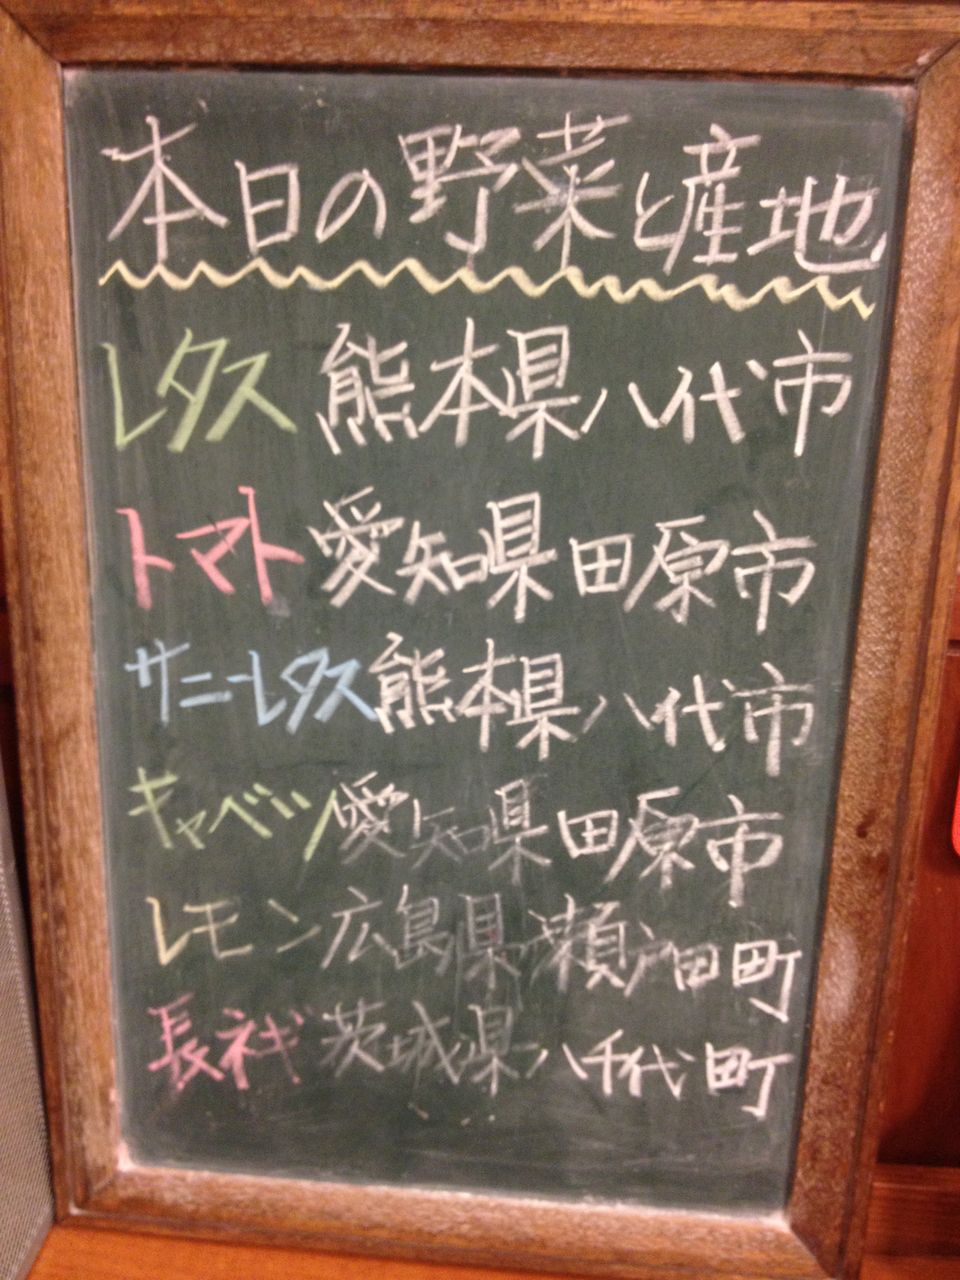 本日の野菜と産地
レタス 熊本県八代市
トマト 愛知県田原市
サニーレタス 熊本県八代市
キャベツ 愛知県田原市
レモン 広島県瀬戸田町
長ネギ 茨城県八千代町